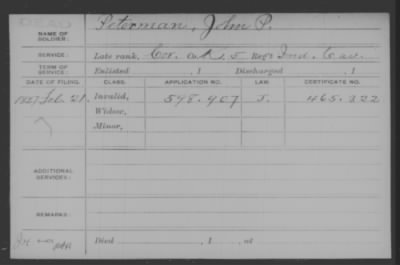 DEAD
NAME OF SOLDIER: Peterman, John P.
SERVICE: Late rank, Cor. Co. A, 5 Reg't Ind. Cav.
TERM OF SERVICE: Enlisted , 1 Discharged , 1
DATE OF FILING. CLASS. APPLICATION NO. LAW. CERTIFICATE NO.
1887 Feb. 21. Invalid, 598.907 J. 465.322
Widow,
Minor,
ADDITIONAL SERVICES:
REMARKS:
Died , 1 , at